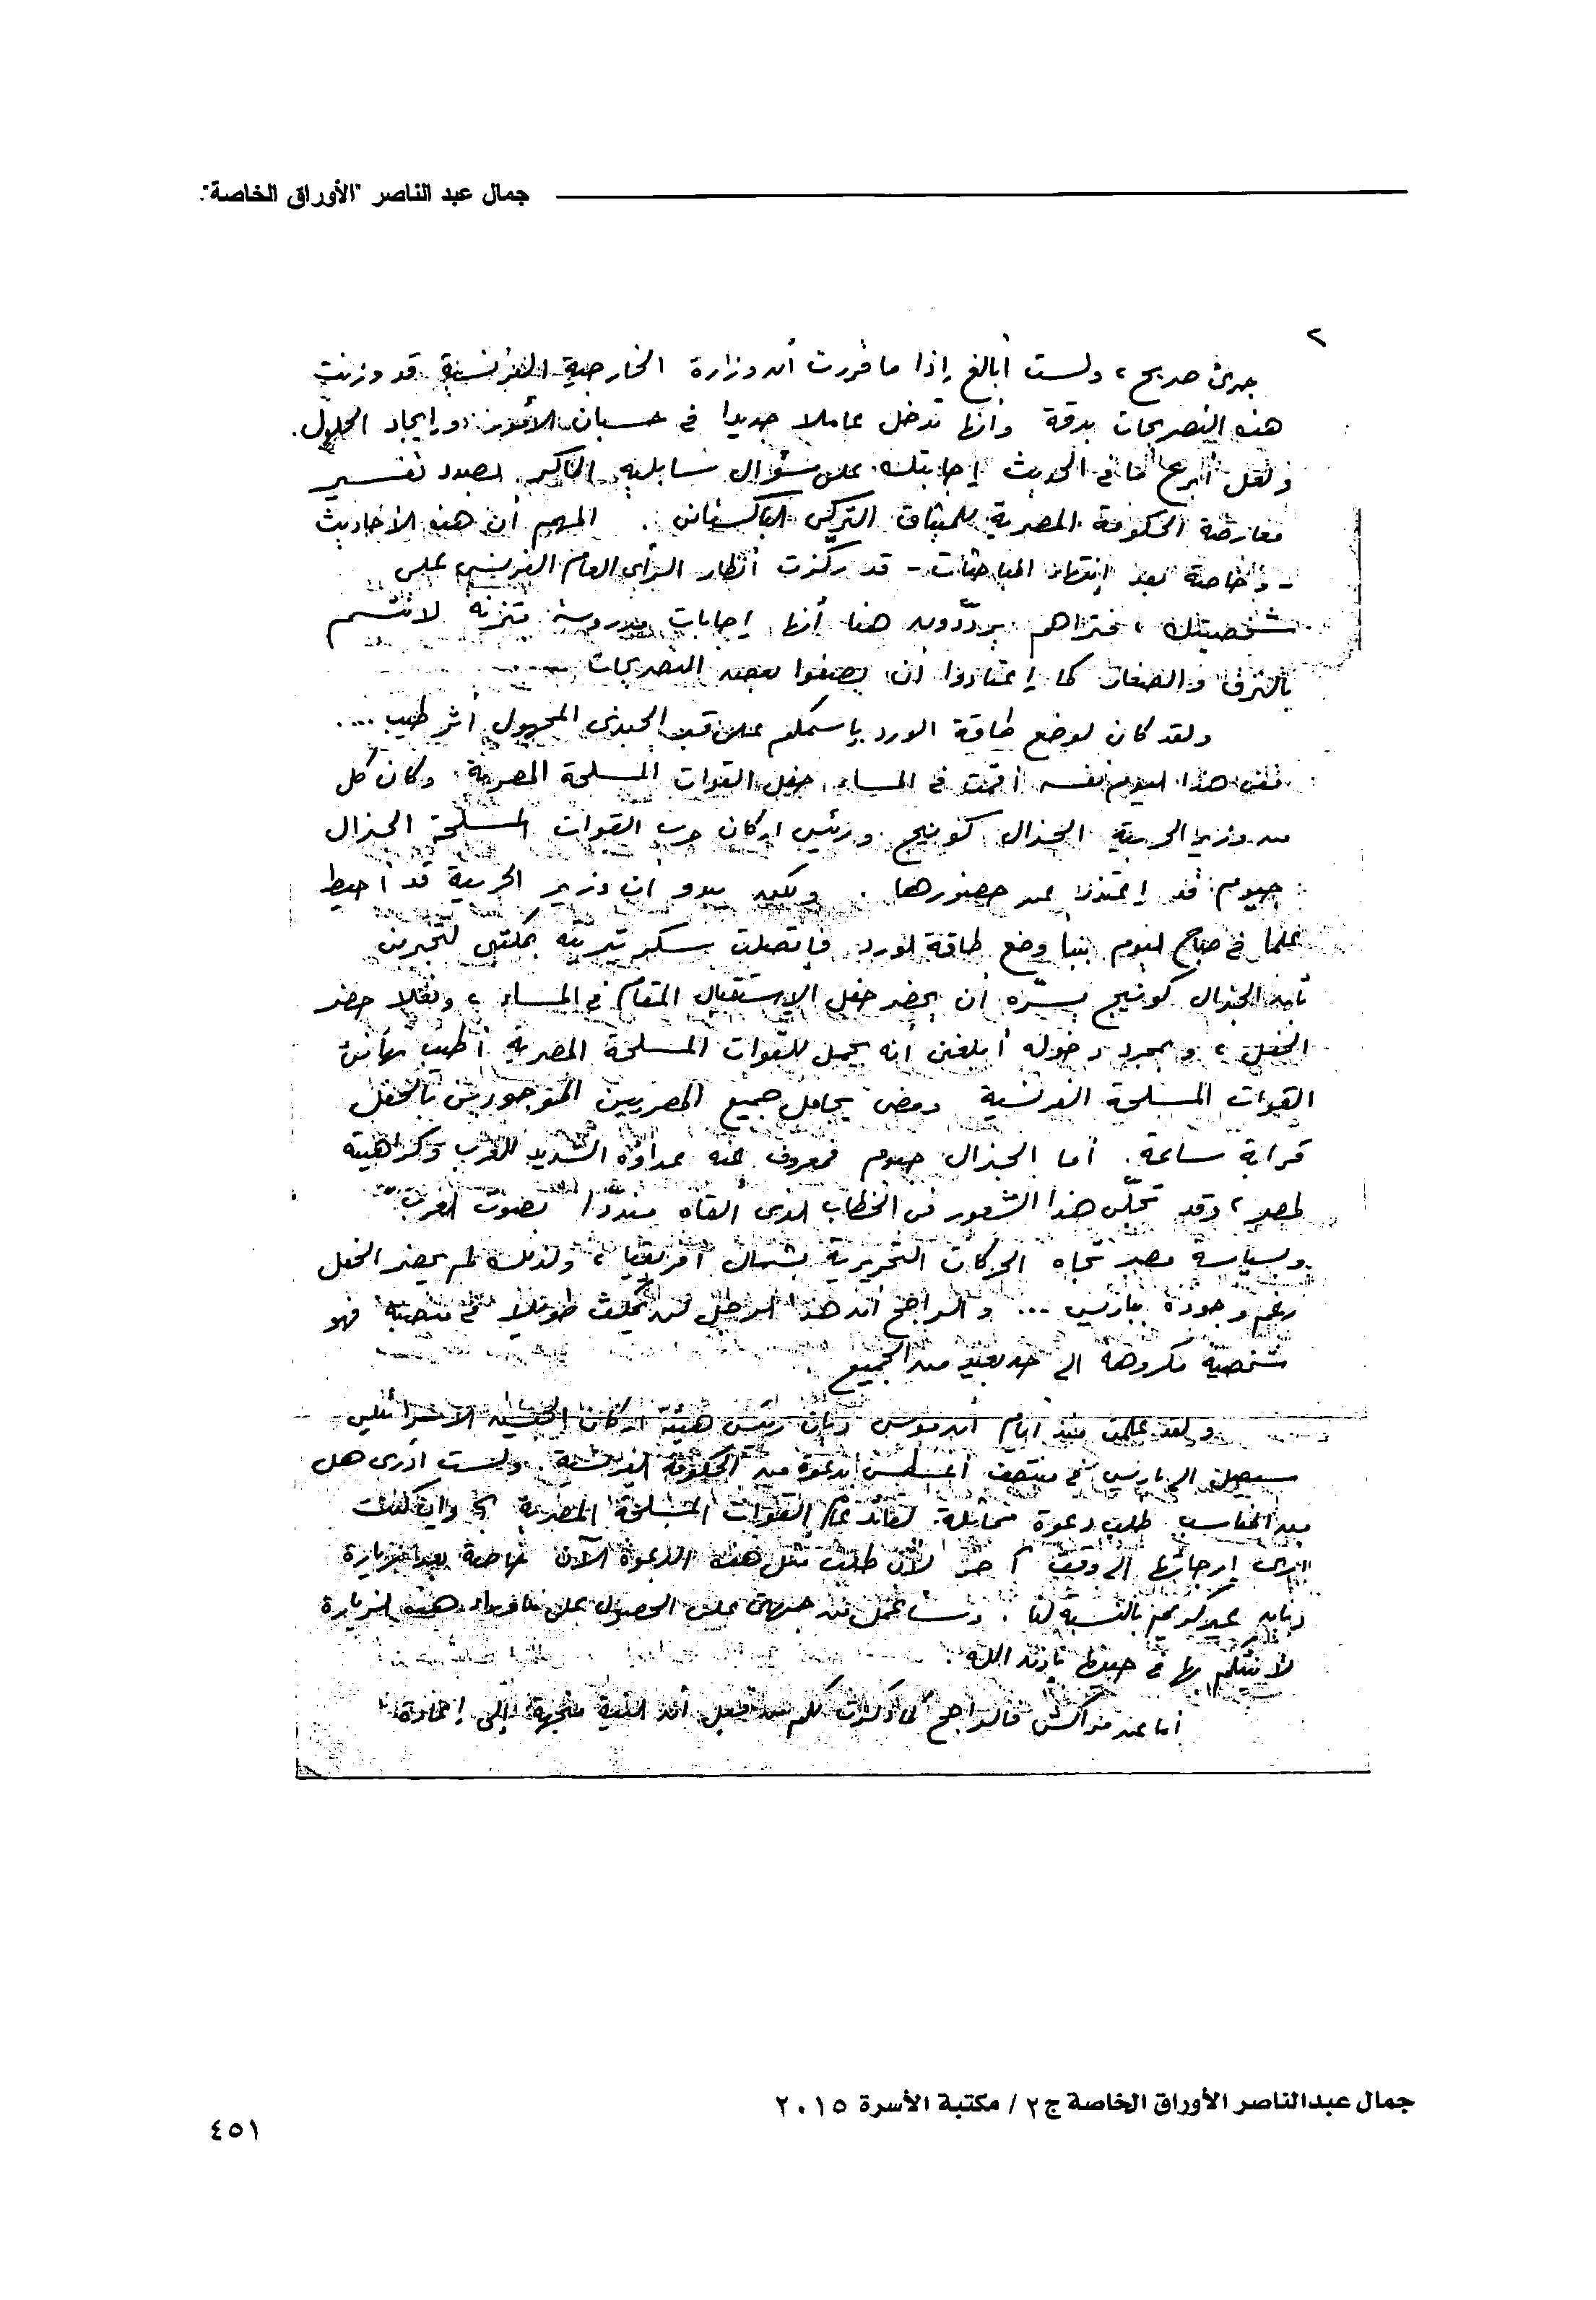 جمال عبد الناصر "الأوراق الخاصة".
٢
جرئ صريح، ولست أبالغ إذا ما قررت أن وزارة الخارجية الفرنسية قد وزنت
هذه التصريحات بدقة وأنها تدخل عاملا جديدا في حسبان الأمور وإيجاد الحلول.
ولعل أبرع ما في الحديث إجابتك على سؤال بصدد تفسير
معارضة الحكومة المصرية للميثاق التركي الباكستاني. المهم أن هذه الأحاديث
- وخاصة بعد إنتهاء المباحثات - قد ركزت أنظار الرأى العام الفرنسي على
شخصيتك، فتراهم يرددون هنا أنها إجابات مدروسة متزنة لا تتسم
بالنزق والصغار كما إعتادوا أن يصفوا بعض التصريحات
ولقد كان لوضع طاقة الورد بإسمكم على قبر الجندى المجهول أثر طيب ....
ففى هذا اليوم نفسه أقمت في المساء حفل القوات المسلحة المصرية، وكان كل
من وزير الحربية الجنرال كونيج ورئيس اركان حرب القوات المسلحة الجنرال
جيوم قد إعتذرا عن حضورها. ولكن يبدو ان وزير الحربية قد أحيط
علما في صباح اليوم بنبأ وضع طاقة الورد فإتصلت سكرتيرته بمكتبي لتخبرنى
بأن الجنرال كونيج يسرّه أن يحضر حفل الإستقبال المقام في المساء، وفعلا حضر
الحفل، وبمجرد دخوله أبلغنى أنه يحمل للقوات المسلحة المصرية أطيب تهانئ
القوات المسلحة الفرنسية ومضى يجامل جميع المصريين الموجودين بالحفل
قرابة ساعة. أما الجنرال جيوم فمعروف عنه عداؤه الشديد للعرب وكراهيته
لمصر، وقد تجلّى هذا الشعور في الخطاب الذى ألقاه مندّدا بصوت العرب
وبسياسة مصر تجاه الحركات التحريرية بشمال أفريقيا، ولذلك لم يحضر الحفل
رغم وجوده بباريس ... والراجح أن هذا الرجل لن يمكث طويلا في منصبه فهو
شخصية مكروهة الى حد بعيد من الجميع.
ولقد علمت منذ أيام أن موسى ديان رئيس هيئة اركان الجيش الاسرائيلى
سيصل الى باريس في منتصف أغسطس بدعوة من الحكومة الفرنسية. ولست أدرى هل
من المناسب طلب دعوة مماثلة لقائد عام القوات المسلحة المصرية؟ وان كنت
أرى إرجائها الى وقت آخر لأن طلب مثل هذه الدعوة الآن خاصة بعد زيارة
ديان غير كريم بالنسبة لنا. وسأعمل من جهتى على الحصول على ما وراء هذه الزيارة
لأبلغكم بها في حينها بإذن الله.
أما عن مراكش فالراجح كما ذكرت لكم من قبل أن النية متجهة إلى إعادة
جمال عبدالناصر الأوراق الخاصة ج٢ / مكتبة الأسرة ٢٠١٥
٤٥١